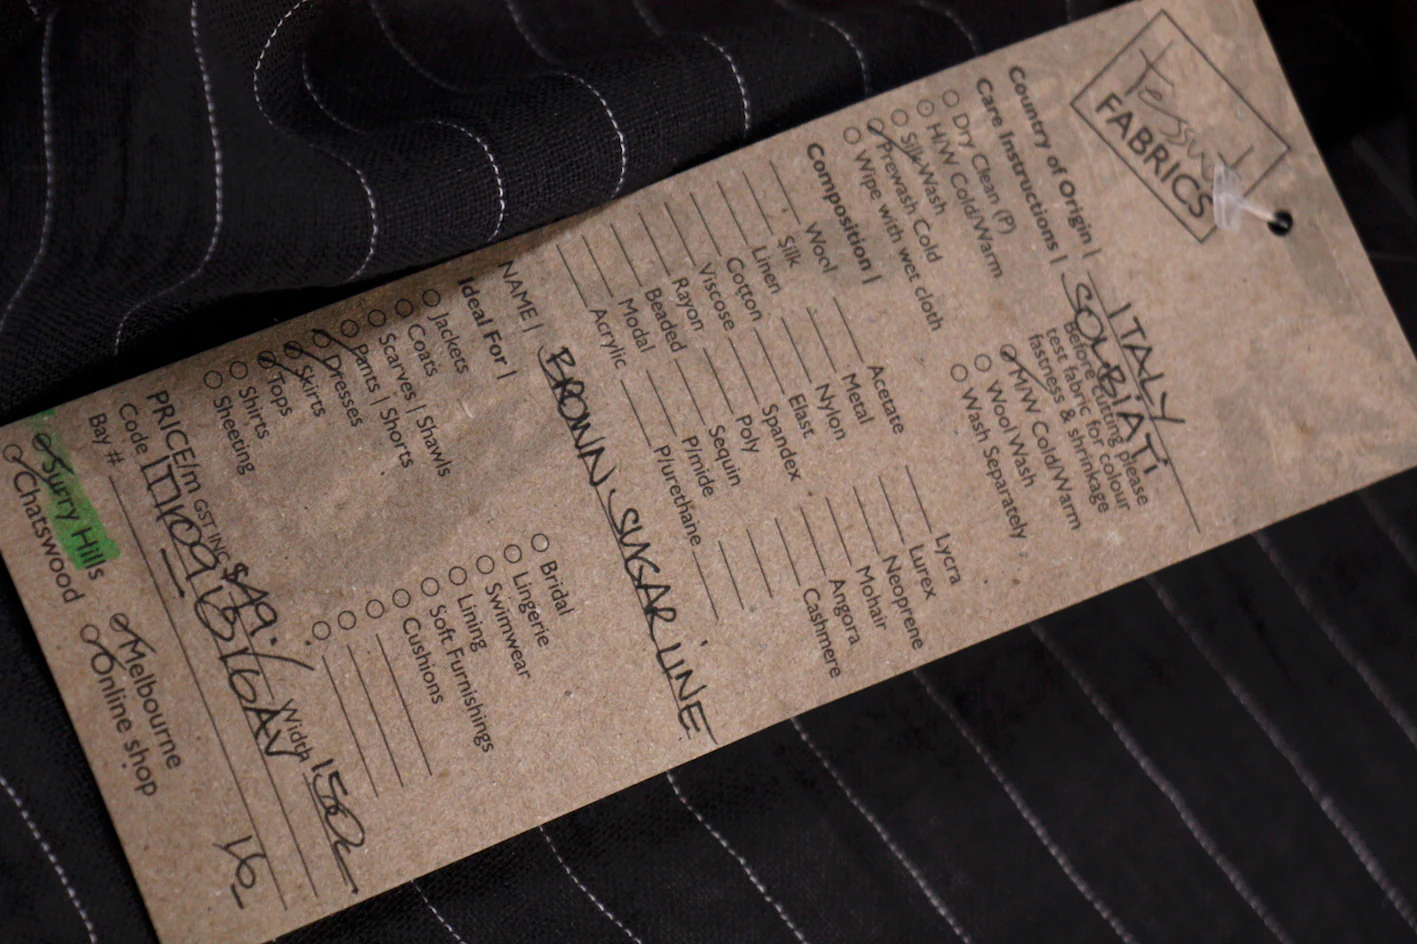 Tessuti
FABRICS
Country of Origin | ITALY
SOLBIATI
Care Instructions | Before cutting please
test fabric for colour
fastness & shrinkage
Dry Clean (P)
H/W Cold/Warm
Silk Wash
Prewash Cold
Wipe with wet cloth
M/W Cold/Warm
Wool Wash
Wash Separately
Composition |
Wool
Silk
Linen
Cotton
Viscose
Rayon
Beaded
Modal
Acrylic
Acetate
Metal
Nylon
Elast
Spandex
Poly
Sequin
P/mide
P/urethane
Lycra
Lurex
Neoprene
Mohair
Angora
Cashmere
NAME | BROWN SUGAR LINE
Ideal For |
Jackets
Coats
Scarves | Shawls
Pants | Shorts
Dresses
Skirts
Tops
Shirts
Sheeting
Bridal
Lingerie
Swimwear
Lining
Soft Furnishings
Cushions
PRICE/m GST INC $49. Width 150c
Code
Bay #
Surry Hills
Chatswood
Melbourne
Online shop